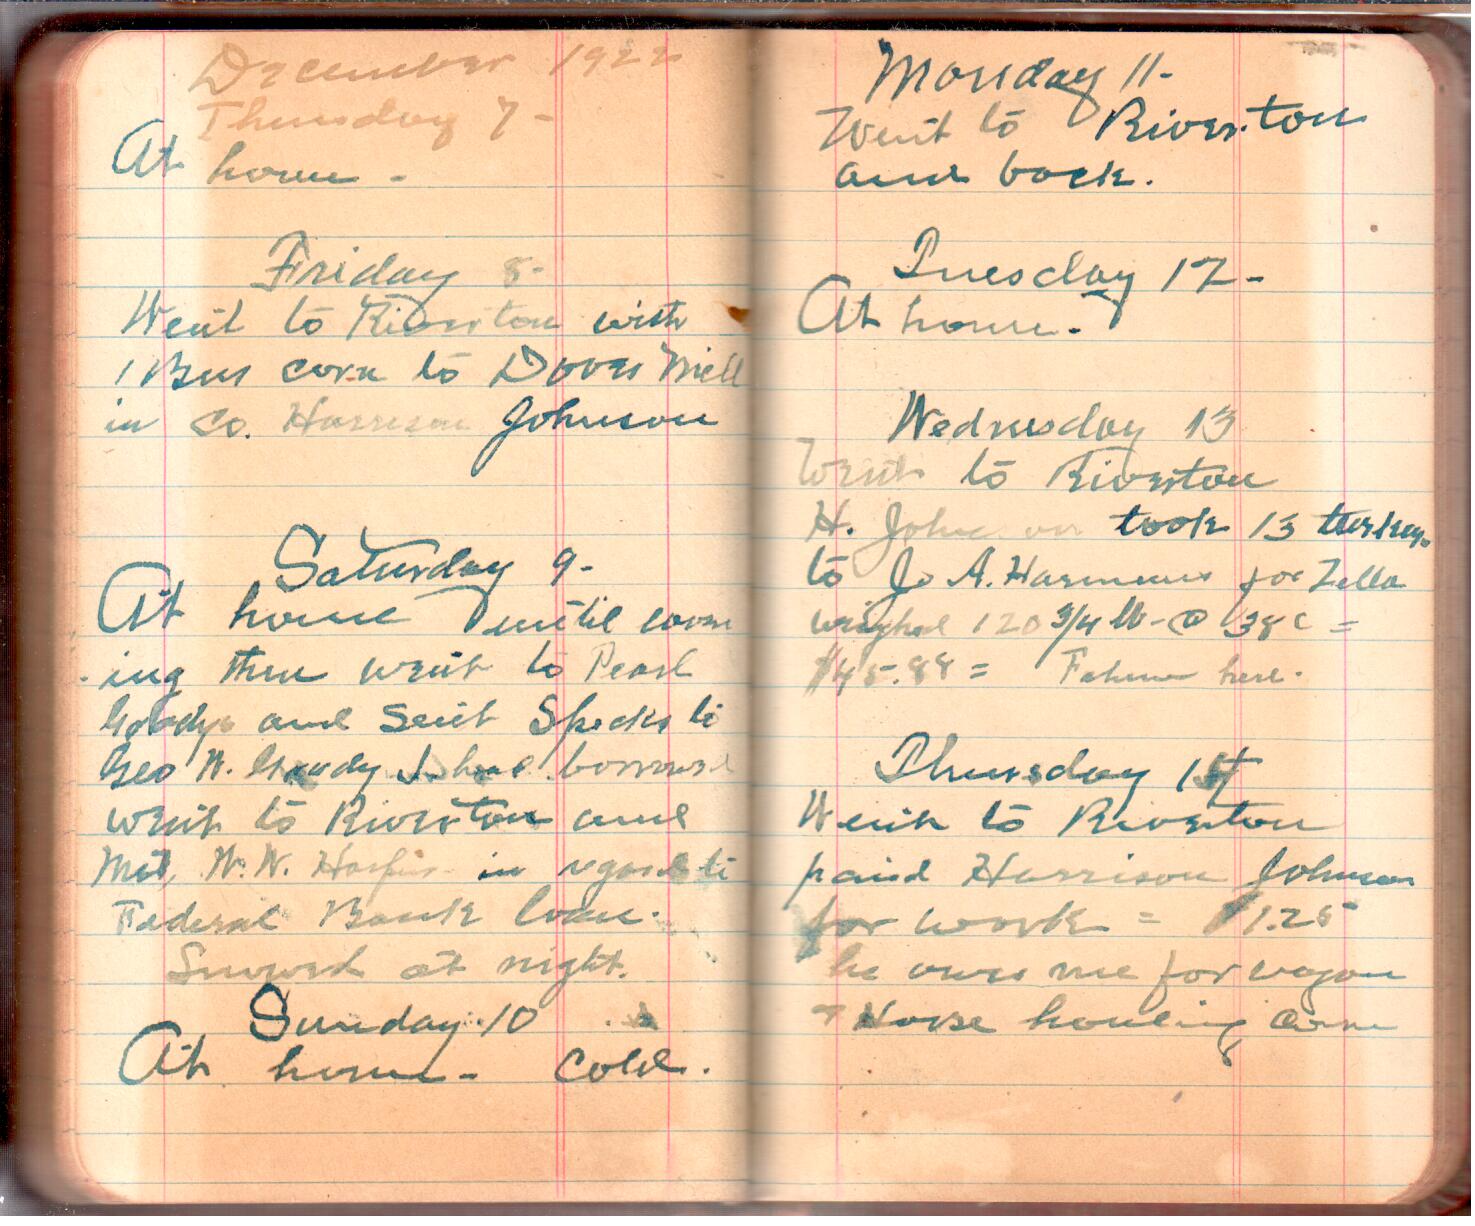 December 1922
Thursday 7-
At home -
Friday 8-
Went to Riverton with
1 Bus corn to Doves Mill
in Co. Harrison Johnson
Saturday 9-
At home until even
ing then went to Pearl
Goodys and sent Specks to
Geo W. Goody I had borrowed
went to Riverton and
Met, W. W. in regard to
Federal Bank loan.
Snowed at night.
Sunday 10
At home - Cold.
Monday 11-
Went to Riverton
and back.
Tuesday 12-
At home -
Wednesday 13
Went to Riverton
H. Johnson took 13 turkeys
to J. A. Harmans for Zella
weighed 120 3/4 lb - @ 38c =
$45.88 = here.
Thursday 14
Went to Riverton
paid Harrison Johnson
for work = $1.25
he owes me for wagon
+ Horse hauling Corn